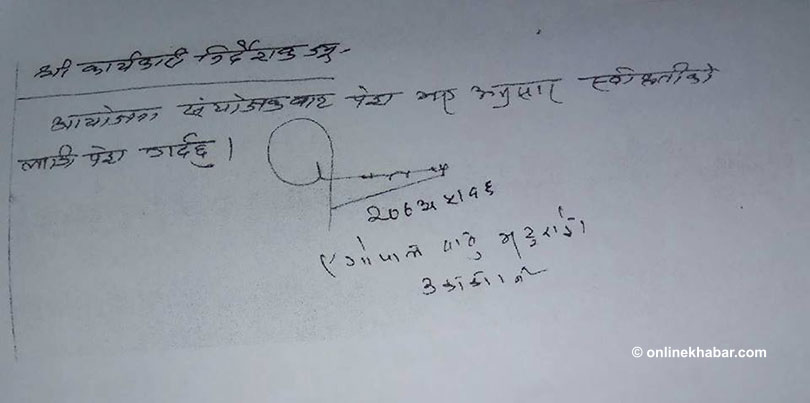 श्री कार्यकारी निर्देशक ज्यू,
आयोजना संयोजकबाट पेश भए अनुसार स्वीकृतीको
लागि पेश गर्दछु ।
गोपाल बाबु भट्टराई
© onlinekhabar.com